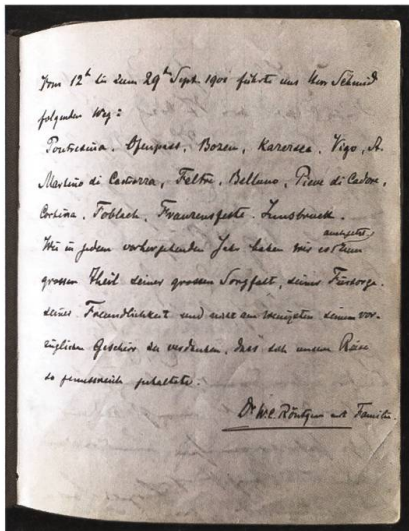 Vom 12ᵗ bis zum 29ᵗ Sept. 1900 führte uns Herr Schmid
folgenden Weg:
Pontresina, Ofenpass, Bozen, Karersee, Vigo, S.
Martino di Castrozza, Feltre, Belluno, Pieve di Cadore,
Cortina, Toblach, Franzensfeste, Innsbruck.
Wie in jedem vorhergehenden Jahr haben wir es zum
grossen Theil seiner grossen Sorgfalt, seiner Fürsorge,
seiner Freundlichkeit und nicht am wenigsten seinem vor-
züglichen Geschirr zu verdanken, dass sich unsere Reise
so genussreich gestaltete.
Dr W.C. Röntgen mit Familie.